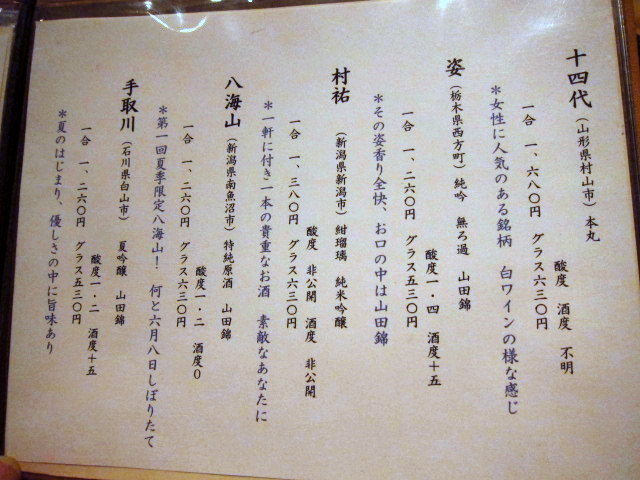 十四代（山形県村山市）本丸
酸度 酒度 不明
一合 一、六八〇円 グラス六三〇円
＊女性に人気のある銘柄 白ワインの様な感じ
姿（栃木県西方町）純吟 無ろ過 山田錦
酸度一・四 酒度＋五
一合 一、二六〇円 グラス五三〇円
＊その姿香り全快、お口の中は山田錦
村祐（新潟県新潟市）紺瑠璃 純米吟醸
酸度 非公開 酒度 非公開
一合 一、三八〇円 グラス六三〇円
＊一軒に付き一本の貴重なお酒 素敵なあなたに
八海山（新潟県南魚沼市）特純原酒 山田錦
酸度一・二 酒度０
一合 一、二六〇円 グラス六三〇円
＊第一回夏季限定八海山！ 何と六月八日しぼりたて
手取川（石川県白山市）夏吟醸 山田錦
酸度一・二 酒度＋五
一合 一、二六〇円 グラス五三〇円
＊夏のはじまり、優しさの中に旨味あり